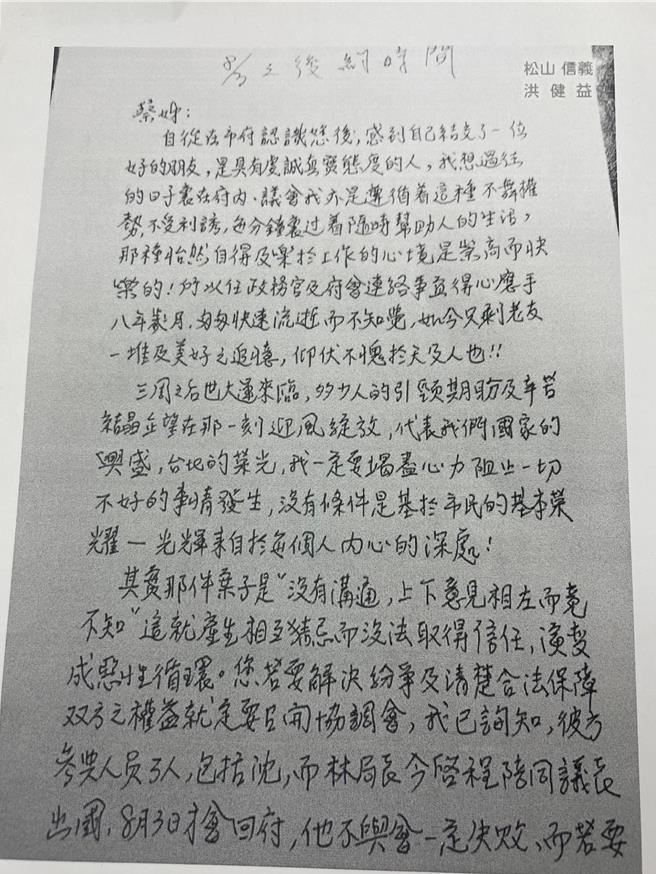 8/3之後細時間
松山 信義
洪 健 益
蔡姊：
自從在市府認識您後，感到自己結交了一位
好的朋友，是具有虔誠無寶態度的人，我想過往
的日子裏在府內、議會我亦是遵循着這種不舞權
勢，不受利誘，每分鐘裏过着隨時幫助人的生活，
那種怡然自得及樂於工作的心境是崇高而快
樂的！所以任政務官及府會連絡事宜得心應手
八年歲月，匆匆快速流逝而不知覺，如今只剩老友
一堆及美好之追憶，仰伏不愧於天及人也！！
三周之后世大運來臨，多少人的引頸期盼及辛苦
結晶企望在那一刻迎風綻放，代表我們國家的
興盛，台北的榮光，我一定要竭盡心力阻止一切
不好的事情發生，沒有條件是基於市民的基本榮
耀—光輝来自於每個人內心的深處！
其實那件案子是"沒有溝通，上下意見相左而竟
不知"這就產生相互猜忌而沒法取得信任，演變
成惡性循環。您若要解决紛爭及清楚合法保障
双方之權益就定要召開協調會，我已詢知，彼方
參與人员3人，包括沈，而林局長今啓程陪同議長
出國，8月3日才會回府，他不與會一定失敗、而若要